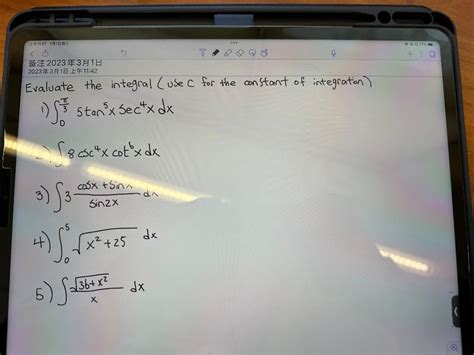 上午11:47 3月1日周三
备注 2023年3月1日
2023年3月1日 上午11:42
Evaluate the integral (use C for the constant of integration)
1) ∫₀^(π/3) 5tan⁵x sec⁴x dx
2) ∫ 8 csc⁴x cot⁶x dx
3) ∫ 3 (cosx + sinx)/(sin2x) dx
4) ∫₀⁵ √(x²+25) dx
5) ∫ √(36+x²)/x dx